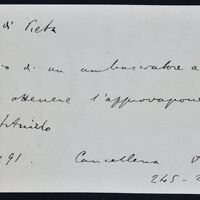 di Pietà
o di un ambasciatore a
ottenere l'approvazione
91. Cancelleria
245-2